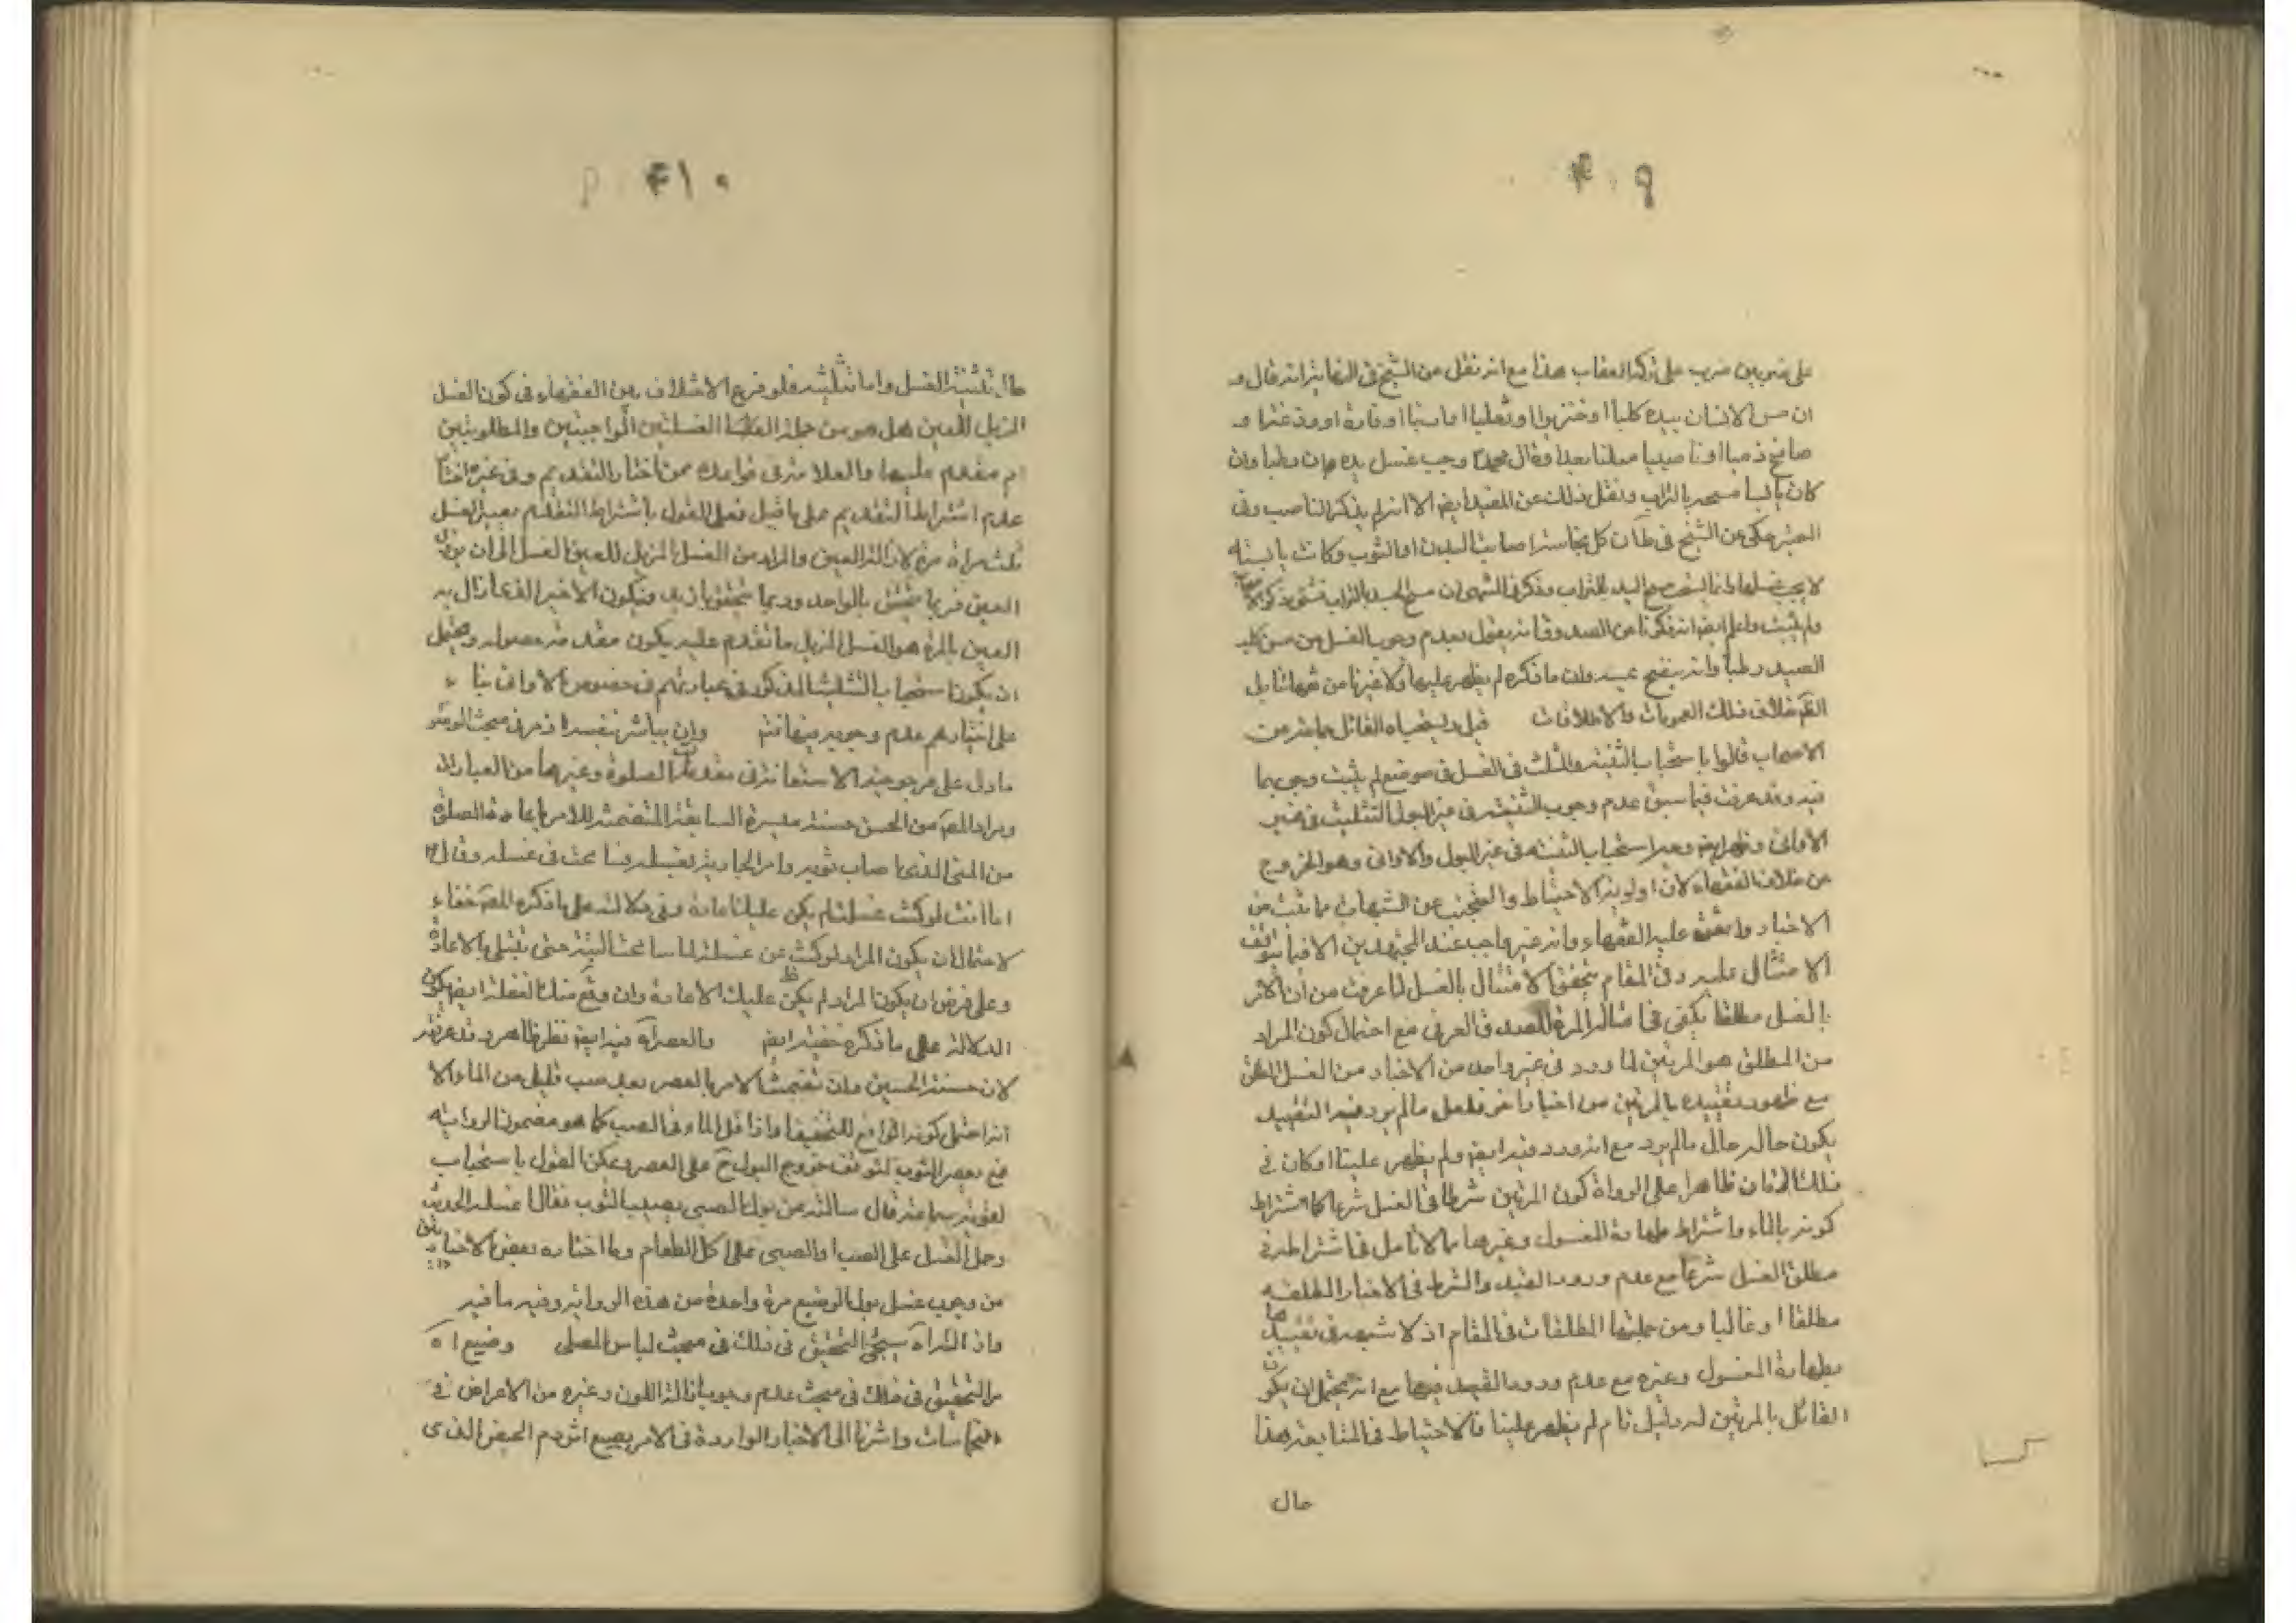 على ضربين ضرب على تركه العقاب هذا مع انه نقل من الشيخ في النهاية انه قال و
ان مس الانسان بيده كلبا او خنزيرا او ثعلبا او ارنبا او فارة او وزغة او
صافح ذميا او ناصبيا معلنا بعداوة آل محمد وجب غسل يده ان كان رطبا وان
كان يابسا مسحه بالتراب ونقل ذلك عن المفيد ايض الا انه لم يذكر الناصب وفي
المعتبر حكى عن الشيخ في ط ان كل نجاسة اصابت البدن او الثوب وكانت يابسة
لا يجب غسلها وانما يستحب مسح اليد بالتراب وذكر في المنتهى ان مسح الجسد بالتراب
ولم يثبت واعلم ايض انه ذكرنا عن الصدوق انه يقول بعدم وجوب الغسل من مس كلب
الصيد رطبا وانه ينضح عنه وان ما ذكره لم يظهر عليها ولا غيرها من
خلاف تلك العمومات والاطلاقات قيل القائل جماعة من
الاصحاب قالوا باستحباب التثنية والتثليث في الغسل في موضع لم يثبت وجوبها
فيه وقد عرفت فيما سبق عدم وجوب التثنية في غير البول والتثليث في غير
الاواني وظهر ايض وجه استحباب التثنية في غير البول والاواني وهو الخروج
عن خلاف الفقهاء لان اولوية الاحتياط والتجنب عن الشبهات مما ثبت من
الاخبار واتفق عليه الفقهاء وانه غير واجب عند المجتهدين الا فيما يتوقف
الامتثال عليه وفي المقام يتحقق الامتثال بالغسل لما عرفت من ان الامر
بالغسل مطلقا يكفي في امتثاله المرة للصدق العرفي مع احتمال كون المراد
من المطلق هو المرتين لما ورد في غير واحد من الاخبار من الغسل المطلق
مع ظهور تقييده بالمرتين من اخبار اخر فلعل ما لم يرد فيه التقييد
يكون حاله حال ما لم يرد مع انه ورد فيه ايض ولم يظهر علينا او كان في
ذلك الزمان ظاهرا على الرواة كون المرتين شرطا في الغسل شرعا كما اشتراط
كونه بالماء واشتراط طهارة المغسول وغيرهما مما لا تامل في اشتراطه في
مطلق الغسل شرعا مع عدم ورود القيد والشرط في الاخبار المطلقة
مطلقا او غالبا ومن جملتها المطلقات في المقام اذ لا شبهة في تقييدها
بطهارة المغسول وغيره مع عدم ورود القيد فيها مع انه يحتمل ان يكون
القائل بالمرتين له دليل تام لم يظهر علينا فالاحتياط في المتابعة هذا
حال
۴۱۰
حال تثنية الغسل واما تثليثه فلو فرع الاختلاف بين الفقهاء في كون الغسل
المزيل للعين هل هو من جملة الغسلتين الواجبتين والمطلوبتين
ام مقدم عليها والعلامة في قواعده ممن اختار التقديم وفي غيره اختار
عدم اشتراط التقديم على ما قيل فعلى القول باشتراط التقدم يصير الغسل
ثلث مرات مرة لازالة العين والمراد من الغسل المزيل للعين الغسل الى ان يزول
العين فربما يتحقق بالواحد وربما يتحقق بازيد فيكون الاخير الذي زال به
العين بالمرة هو الغسل المزيل ما تقدم عليه يكون مقدمة حصوله ويحتمل
ان يكون استحباب التثليث المذكور في عباراتهم في خصوص الاواني بناء
على اختيارهم عدم وجوبه فيها وان يباشر بنفسه اذ مر في مبحث الوضوء
ما دل على مرجوحية الاستعانة في مقدمات الصلوة وغيرها من العبارات
ومراد المصـ من الحسن حسنة ميسرة السابقة المتضمنة للامر باعادة الصلوة
من المني الذي اصاب ثوبه وامر الجارية بغسله فما بحث في غسله وقال
اما انت لو كنت غسلته لم يكن عليك اعادة وفي دلالته على ما ذكره المصـ خفاء
لاحتمال ان يكون المراد لو كنت من غسلته لما سامحت البتة حتى تبتلي بالاعادة
وعلى فرض ان يكون المراد لم يكن عليك الاعادة وان وقع منك الغفلة ايض يكون
الدلالة على ما ذكره خفية ايض والعصر آه فيه ايض نظر ظاهر وقد عرفته
لان حسنة الحسين وان تضمنت الامر بالعصر بعد صب قليل من الماء الا
انه احتمل كونه الواقع للتخفيف واذا قل الماء في الصب كما هو مضمون الرواية
فبعصر الثوب لتوقف خروج البول ح على العصر ويمكن القول باستحباب
لموثقة سماعة قال سالته عن بول الصبي يصيب الثوب فقال اغسله الحديث
وحمل الغسل على الصب او الصبي على اكل الطعام وما اختاره بعض الاخباريين
من وجوب غسل بول الرضيع مرة واحدة من هذه الرواية وفيه ما فيه
واذ الثراه سيجئ التحقيق في ذلك في مبحث لباس المصلي وضيع اه
مر التحقيق في ذلك في مبحث عدم وجوب ازالة اللون وغيره من الاعراض في
النجاسات واشرنا الى الاخبار الواردة في الامر بصبغ اثر دم الحيض الذي